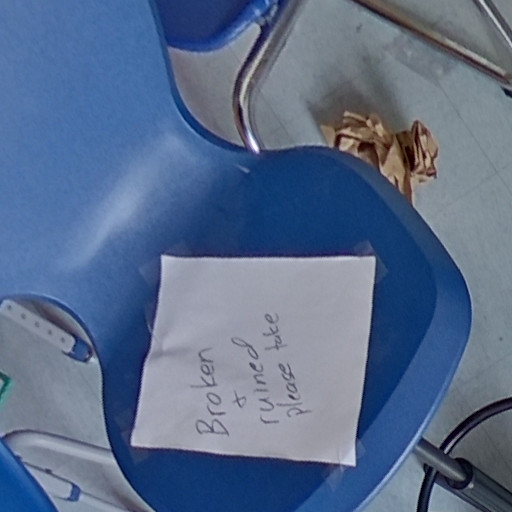 Broken
+
ruined
please take